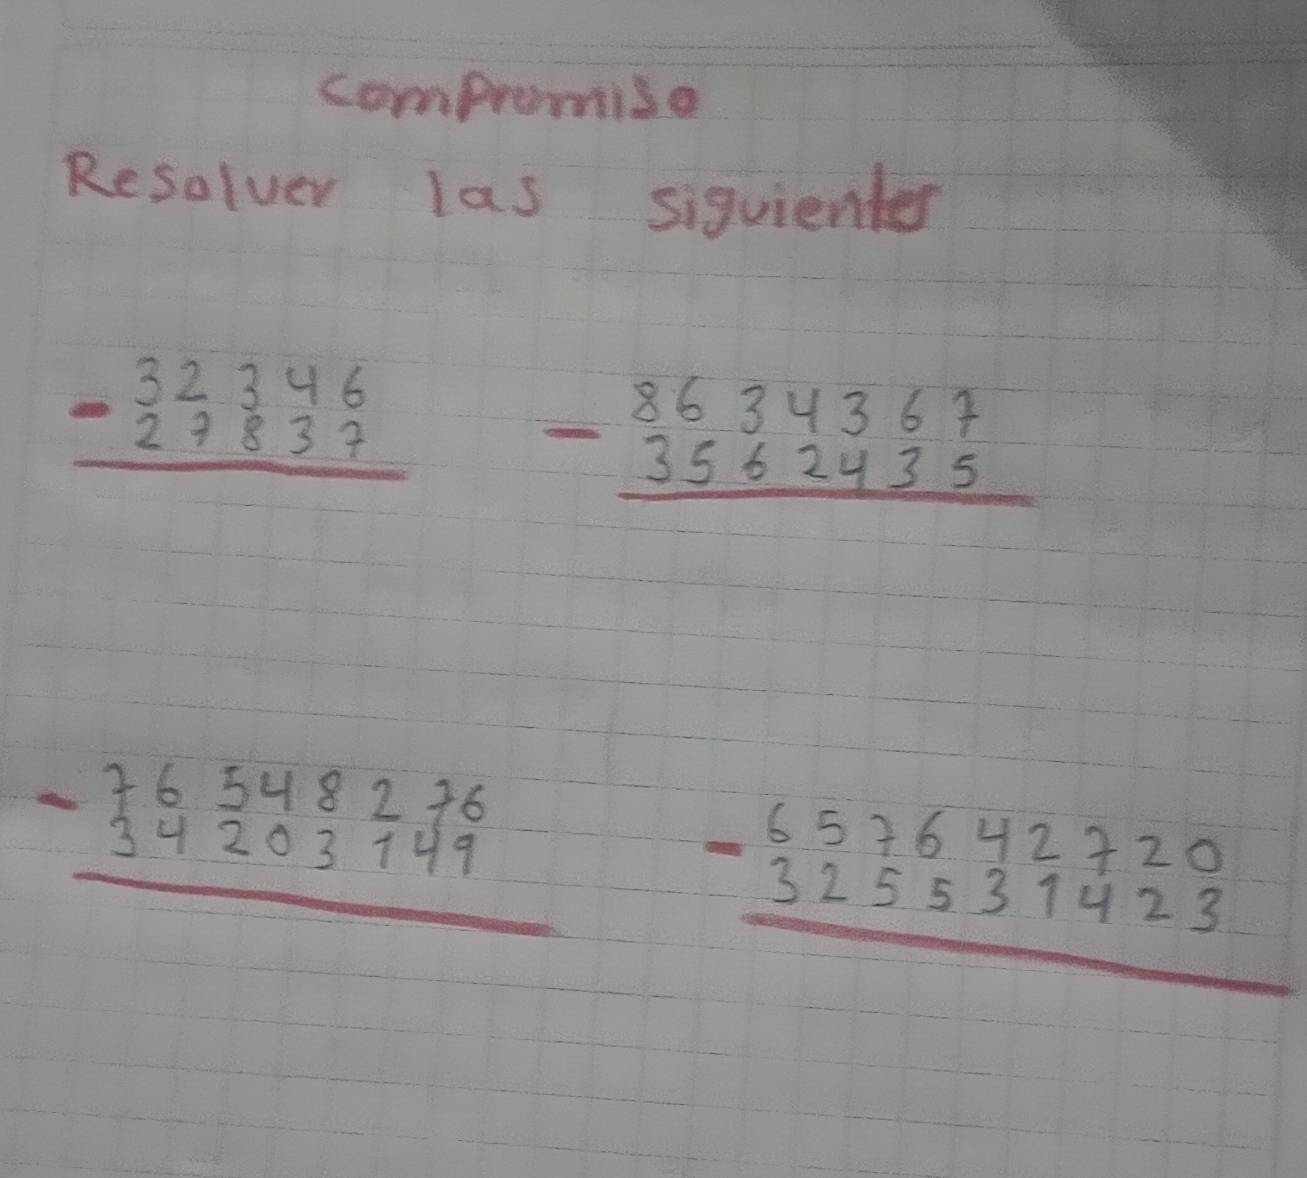 Compromiso
Resolver las siguientes
- 32346
27837
- 8634367
3562435
- 76548276
34203149
- 657642720
325531423